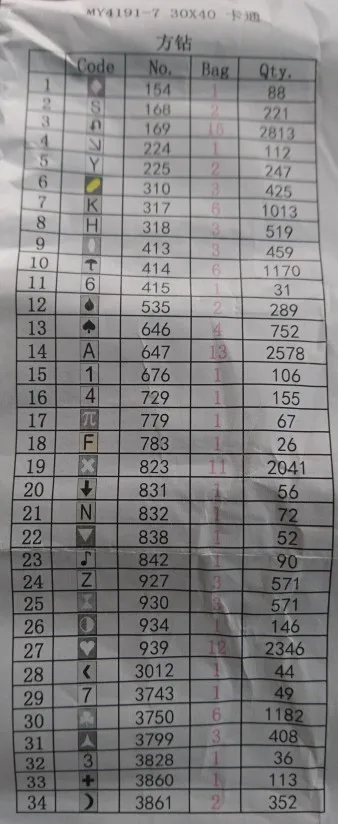 MY4191-7 30X40 卡通
方钻
Code No. Bag Qty.
1 154 1 88
2 S 168 2 221
3 169 15 2813
4 224 1 112
5 Y 225 2 247
6 310 3 425
7 K 317 6 1013
8 H 318 3 519
9 413 3 459
10 414 6 1170
11 6 415 1 31
12 535 2 289
13 ♠ 646 4 752
14 A 647 13 2578
15 1 676 1 106
16 4 729 1 155
17 π 779 1 67
18 F 783 1 26
19 823 11 2041
20 831 1 56
21 N 832 1 72
22 838 1 52
23 ♪ 842 1 90
24 Z 927 3 571
25 930 3 571
26 934 1 146
27 939 12 2346
28 3012 1 44
29 7 3743 1 49
30 3750 6 1182
31 3799 3 408
32 3 3828 1 36
33 3860 1 113
34 3861 2 352